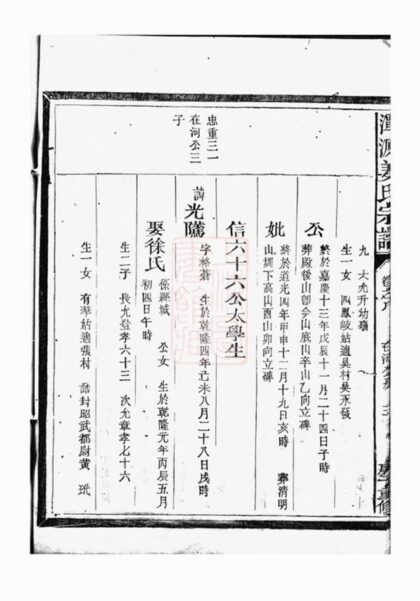 潭源姜氏宗譜
九 大允升幼殤
生一女 四鳳岐姑適吳村吳永發
公
終於嘉慶十三年戊辰十一月二十四日子時
葬殿後山即今山底山辛山乙向立碑
妣
終於道光四年甲申十二月十九日亥時 葬清明
山圳下高山酉山卯向立碑
信六十六公太學生
諱光隲
字格蒼 生於乾隆四年己未八月二十八日戌時
娶徐氏
係縣城 公女 生於乾隆元年丙辰五月
初四日午時
生二子 長允登孝六十三 次允章孝七十六
生一女 有華姑適張村 誥封昭武都尉黃 玳
忠重三一
在河公三
子